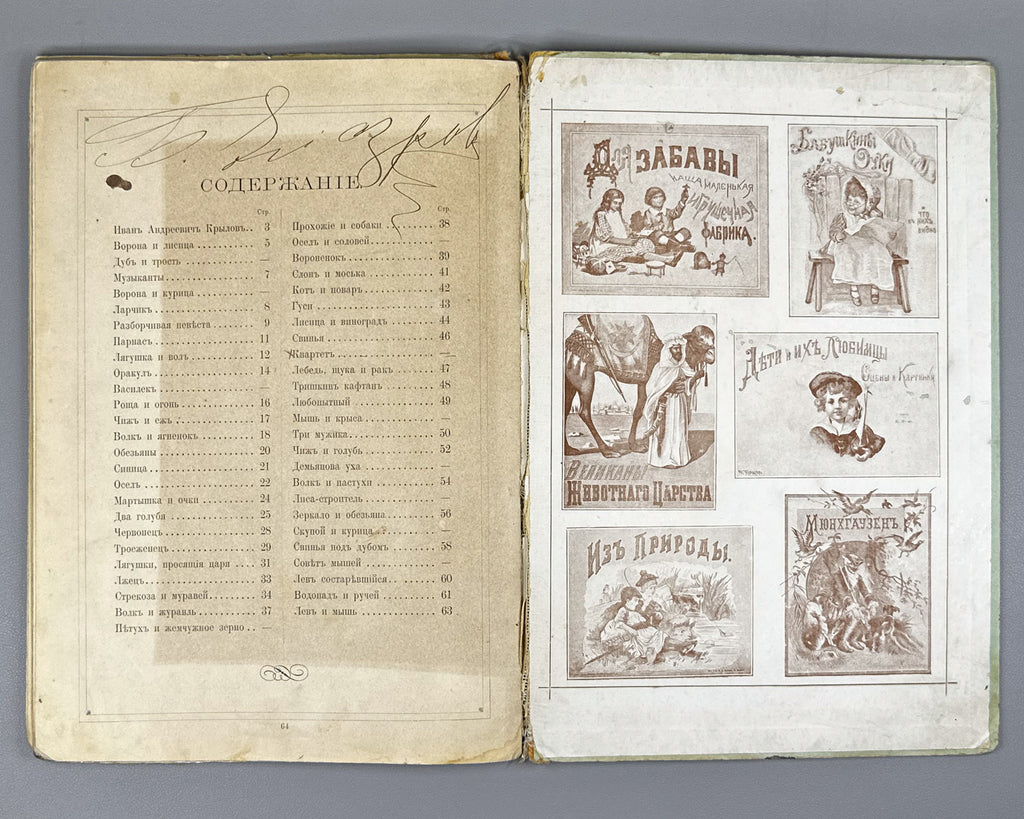 СОДЕРЖАНІЕ
Стр.
Иванъ Андреевичъ Крыловъ.. 3
Ворона и лисица ........... 5
Дубъ и трость ............. —
Музыканты ................. 7
Ворона и курица ........... —
Ларчикъ ................... 8
Разборчивая невѣста ....... 9
Парнасъ ................... 11
Лягушка и волъ ............ 12
Оракулъ ................... 14
Василекъ .................. —
Роща и огонь .............. 16
Чижъ и ежъ ................ 17
Волкъ и ягненокъ .......... 18
Обезьяны .................. 20
Синица .................... 21
Оселъ ..................... 22
Мартышка и очки ........... 24
Два голубя ................ 25
Червонецъ ................. 28
Троеженецъ ................ 29
Лягушки, просящія царя .... 31
Лжецъ ..................... 33
Стрекоза и муравей ........ 34
Волкъ и журавль ........... 37
Пѣтухъ и жемчужное зерно .. —
Стр.
Прохожіе и собаки ......... 38
Оселъ и соловей ........... —
Вороненокъ ................ 39
Слонъ и моська ............ 41
Котъ и поваръ ............. 42
Гуси ...................... 43
Лисица и виноградъ ........ 44
Свинья .................... 46
Квартетъ .................. —
Лебедь, щука и ракъ ....... 47
Тришкинъ кафтанъ .......... 48
Любопытный ................ 49
Мышь и крыса .............. —
Три мужика ................ 50
Чижъ и голубь ............. 52
Демьянова уха ............. —
Волкъ и пастухи ........... 54
Лиса-строитель ............ —
Зеркало и обезьяна ........ 56
Скупой и курица ........... —
Свинья подъ дубомъ ........ 58
Совѣтъ мышей .............. —
Левъ состарѣвшійся ........ 60
Водопадъ и ручей .......... 61
Левъ и мышь ............... 63
64
Для забавы
наша маленькая
игрушечная
фабрика.
Бабушкины
Очки
и
что
въ нихъ
видно
Великаны
Животнаго Царства
Дѣти и ихъ Любимцы
Сцены и Картинки
Изъ Природы.
Мюнхгаузенъ